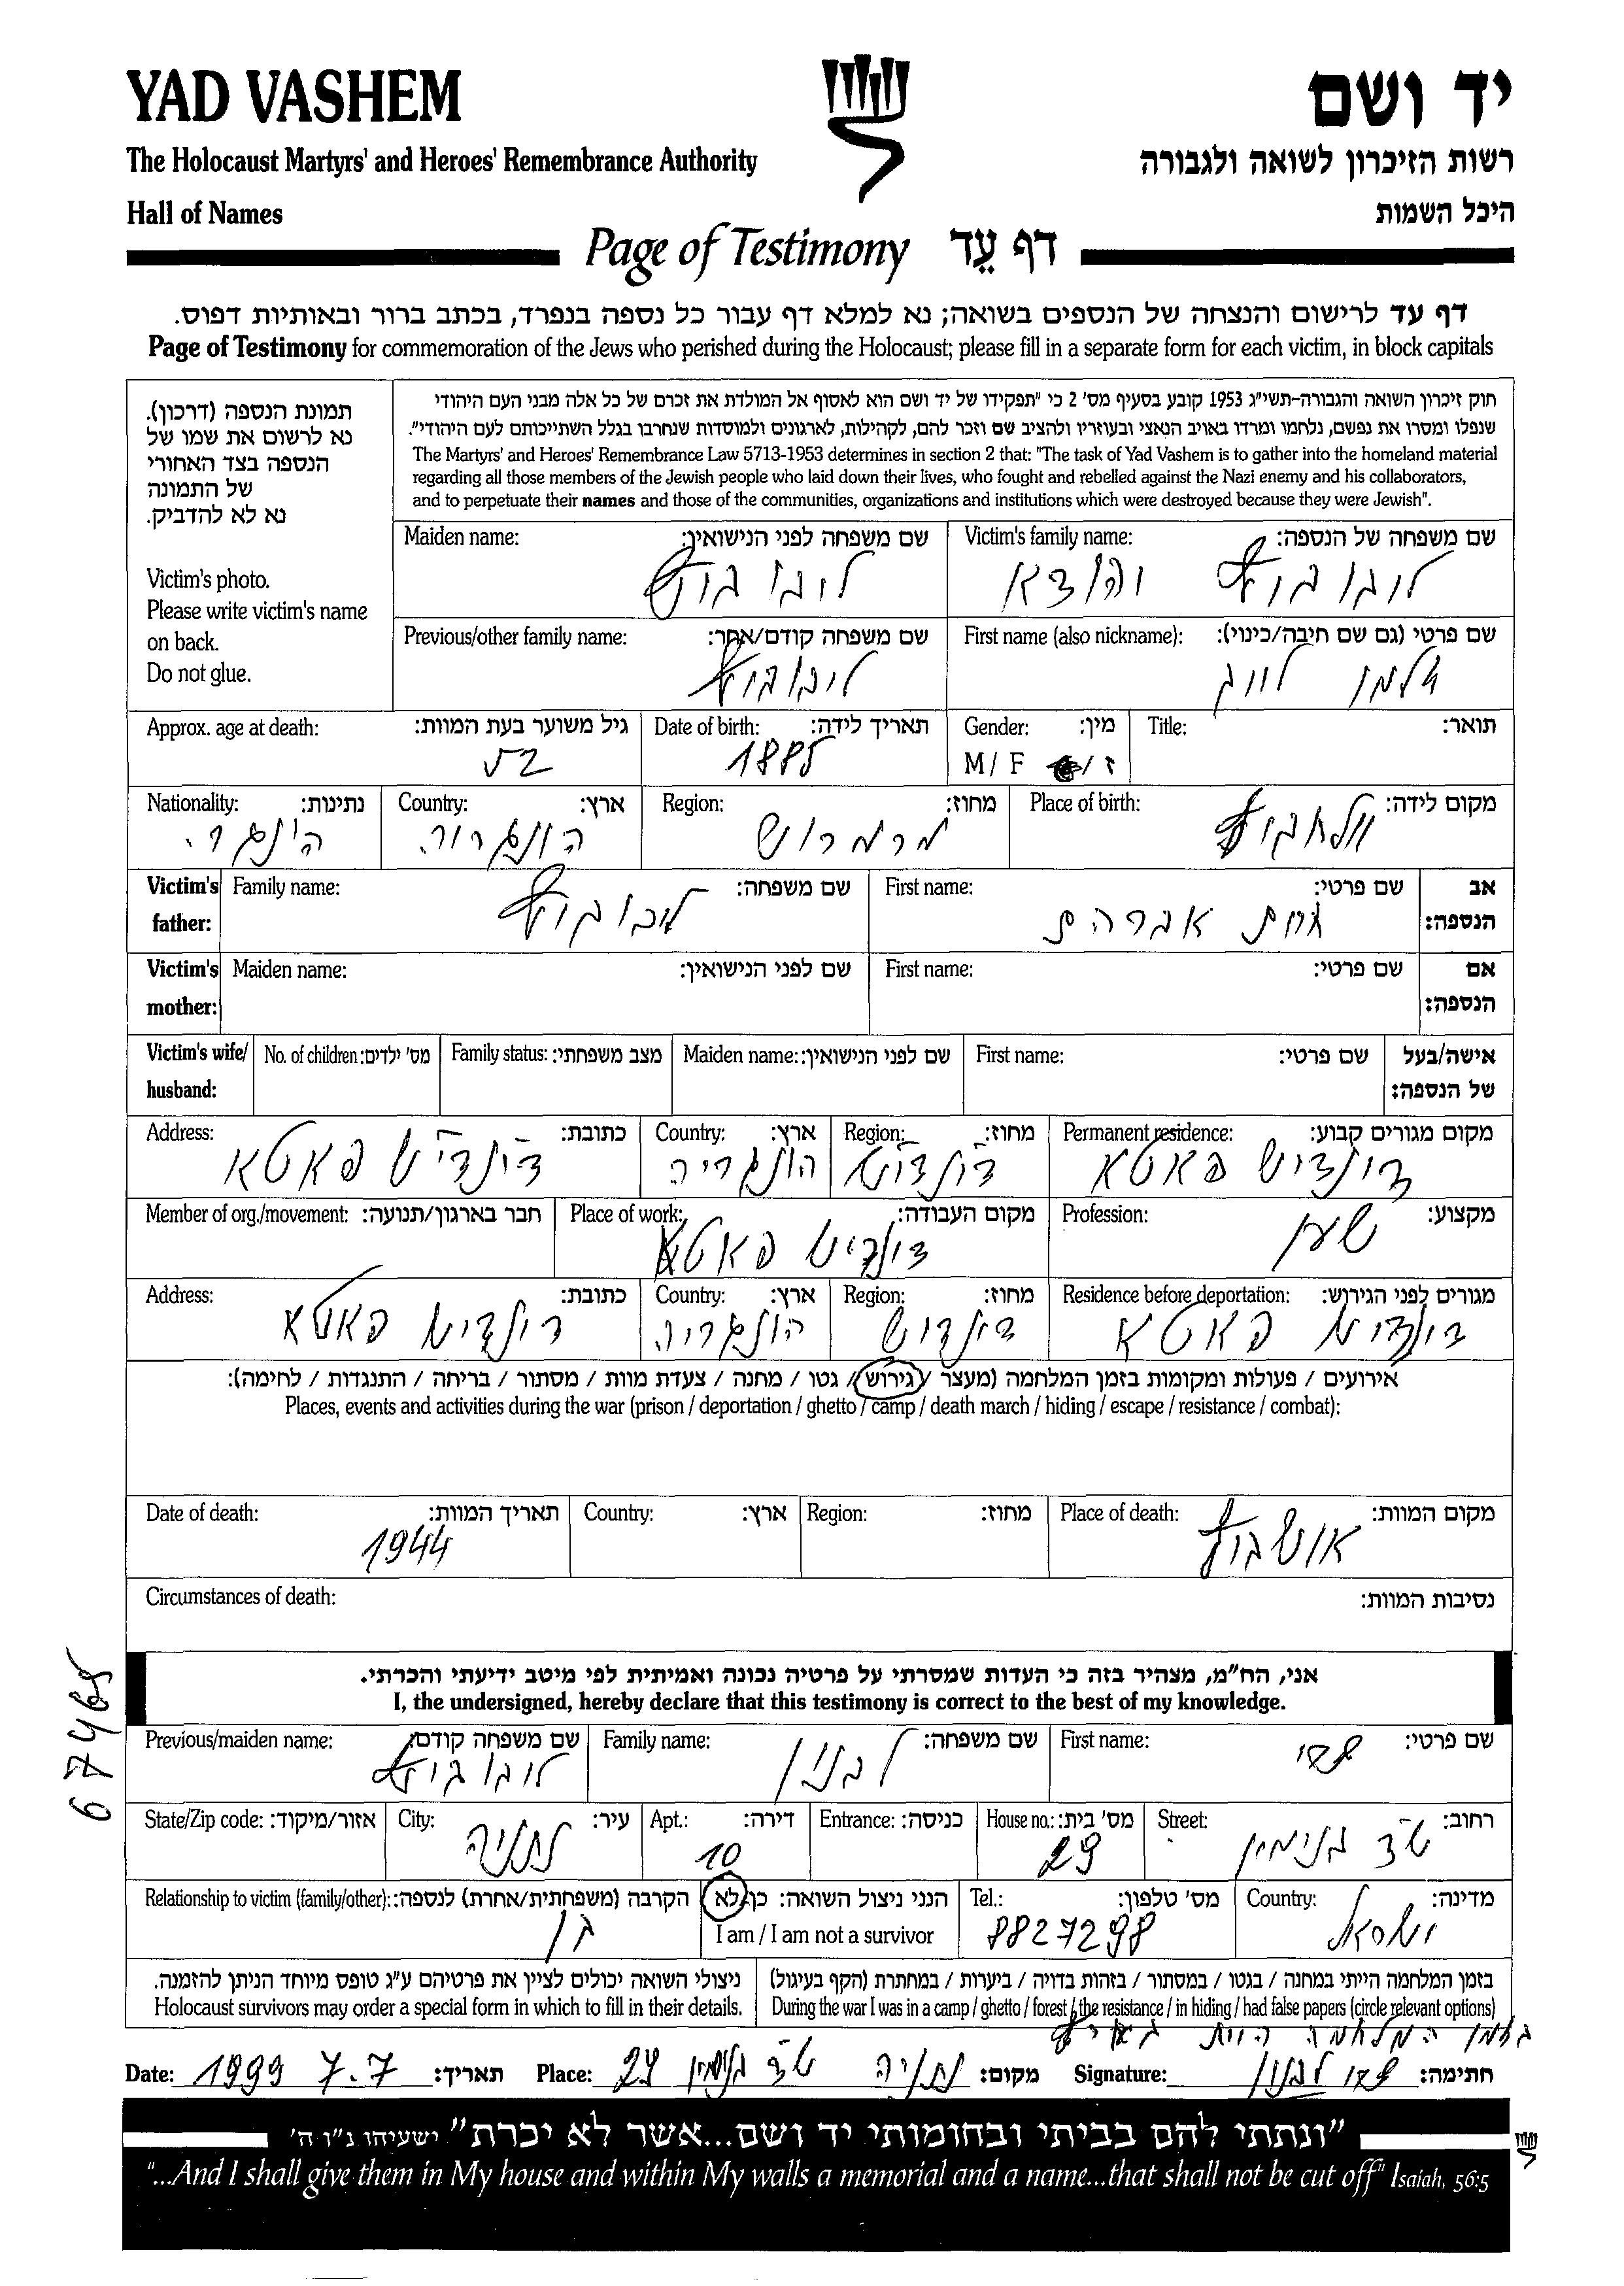 YAD VASHEM יד ושם
The Holocaust Martyrs' and Heroes' Remembrance Authority רשות הזיכרון לשואה ולגבורה
Hall of Names היכל השמות
Page of Testimony דף עֵד
דף עד לרישום והנצחה של הנספים בשואה; נא למלא דף עבור כל נספה בנפרד, בכתב ברור ובאותיות דפוס.
Page of Testimony for commemoration of the Jews who perished during the Holocaust; please fill in a separate form for each victim, in block capitals
תמונת הנספה (דרכון).
נא לרשום את שמו של
הנספה בצד האחורי
של התמונה
נא לא להדביק.
Victim's photo.
Please write victim's name
on back.
Do not glue.
חוק זיכרון השואה והגבורה-תשי"ג 1953 קובע בסעיף מס' 2 כי "תפקידו של יד ושם הוא לאסוף אל המולדת את זכרם של כל אלה מבני העם היהודי
שנפלו ומסרו את נפשם, נלחמו ומרדו באויב הנאצי ובעוזריו ולהציב שם וזכר להם, לקהילות, לארגונים ולמוסדות שנחרבו בגלל השתייכותם לעם היהודי".
The Martyrs' and Heroes' Remembrance Law 5713-1953 determines in section 2 that: "The task of Yad Vashem is to gather into the homeland material
regarding all those members of the Jewish people who laid down their lives, who fought and rebelled against the Nazi enemy and his collaborators,
and to perpetuate their names and those of the communities, organizations and institutions which were destroyed because they were Jewish".
Victim's family name: שם משפחה של הנספה: Maiden name: שם משפחה לפני הנישואין:
ליבוביץ ליבוביץ
First name (also nickname): שם פרטי (גם שם חיבה/כינוי): Previous/other family name: שם משפחה קודם/אחר:
זלמן לייב ליבוביץ
Title: תואר: Gender: מין: Date of birth: תאריך לידה: Approx. age at death: גיל משוער בעת המוות:
M / F ז / 1885 52
Place of birth: מקום לידה: Region: מחוז: Country: ארץ: Nationality: נתינות:
מרמרוש הונגריה הונגרי
Victim's father: אב הנספה: First name: שם פרטי: Family name: שם משפחה:
אברהם ליבוביץ
Victim's mother: אם הנספה: First name: שם פרטי: Maiden name: שם לפני הנישואין:
Victim's wife/husband: אישה/בעל של הנספה: First name: שם פרטי: Maiden name: שם לפני הנישואין: Family status: מצב משפחתי: No. of children: מס' ילדים:
Permanent residence: מקום מגורים קבוע: Region: מחוז: Country: ארץ: Address: כתובת:
דינדיש פאטא דינדיש הונגריה דינדיש פאטא
Profession: מקצוע: Place of work: מקום העבודה: Member of org./movement: חבר בארגון/תנועה:
שען דינדיש פאטא
Residence before deportation: מגורים לפני הגירוש: Region: מחוז: Country: ארץ: Address: כתובת:
דינדיש פאטא דינדיש הונגריה דינדיש פאטא
אירועים / פעולות ומקומות בזמן המלחמה (מעצר / גירוש / גטו / מחנה / צעדת מוות / מסתור / בריחה / התנגדות / לחימה):
Places, events and activities during the war (prison / deportation / ghetto / camp / death march / hiding / escape / resistance / combat):
Place of death: מקום המוות: Region: מחוז: Country: ארץ: Date of death: תאריך המוות:
אושביץ 1944
Circumstances of death: נסיבות המוות:
אני, הח"מ, מצהיר בזה כי העדות שמסרתי על פרטיה נכונה ואמיתית לפי מיטב ידיעתי והכרתי.
I, the undersigned, hereby declare that this testimony is correct to the best of my knowledge.
67465
First name: שם פרטי: Family name: שם משפחה: Previous/maiden name: שם משפחה קודם:
לבנון ליבוביץ
Street: רחוב: House no.: מס' בית: Entrance: כניסה: Apt.: דירה: City: עיר: State/Zip code: אזור/מיקוד:
בנימין 29 10 נתניה
Country: מדינה: Tel.: מס' טלפון: הנני ניצול השואה: כן/לא Relationship to victim (family/other): הקרבה (משפחתית/אחרת) לנספה:
ישראל 8827298 I am / I am not a survivor בן
בזמן המלחמה הייתי במחנה / בגטו / במסתור / בזהות בדויה / ביערות / במחתרת (הקף בעיגול) ניצולי השואה יכולים לציין את פרטיהם ע"ג טופס מיוחד הניתן להזמנה.
During the war I was in a camp / ghetto / forest / the resistance / in hiding / had false papers (circle relevant options) Holocaust survivors may order a special form in which to fill in their details.
בזמן המלחמה הייתי בארץ
Date: 1999 7.7 תאריך: Place: נתניה בנימין 29 מקום: Signature: לבנון חתימה:
"ונתתי להם בביתי ובחומותי יד ושם...אשר לא יכרת" ישעיהו נ"ו ה'
"...And I shall give them in My house and within My walls a memorial and a name...that shall not be cut off" Isaiah, 56:5